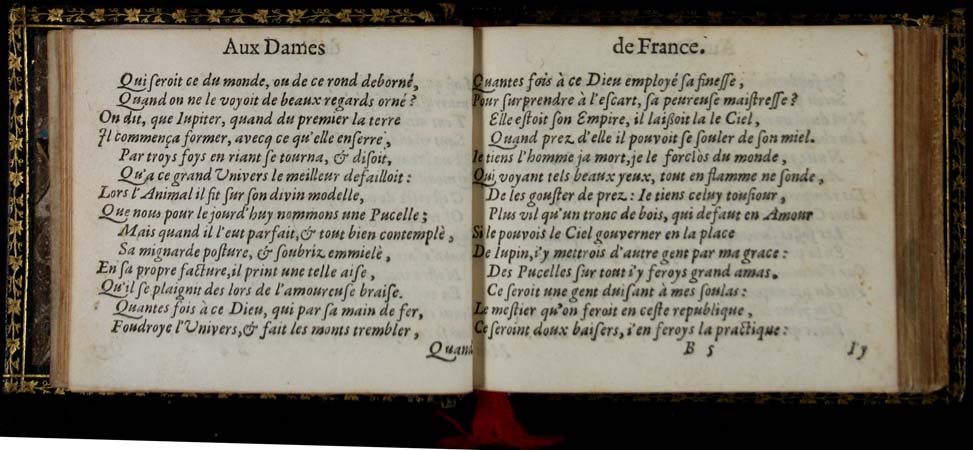 Aux Dames
Qui ſeroit ce du monde, ou de ce rond deborné,
Quand on ne le voyoit de beaux regards orné?
On dit, que Iupiter, quand du premier la terre
Il commença former, avecq ce qu'elle enſerre,
Par troys foys en riant se tourna, & diſoit,
Qu'a ce grand Univers le meilleur defailloit:
Lors l'Animal il fit ſur ſon divin modelle,
Que nous pour le jourd'huy nommons une Pucelle;
Mais quand il l'eut parfait, & tout bien contemplè,
Sa mignarde poſture, & ſoubriz emmielè,
En ſa propre facture, il print une telle aiſe,
Qu'il ſe plaignit des lors de l'amoureuſe braiſe.
Quantes fois à ce Dieu, qui par ſa main de fer,
Foudroye l'Univers, & fait les monts trembler,
Quand
de France.
Quantes fois à ce Dieu employé ſa fineſſe,
Pour ſurprendre à l'eſcart, ſa peureuſe maiſtreſſe?
Elle eſtoit ſon Empire, il laißoit la le Ciel,
Quand prez d'elle il pouvoit ſe ſouler de ſon miel.
Ie tiens l'homme ja mort, je le forclòs du monde,
Qui, voyant tels beaux yeux, tout en flamme ne ſonde,
De les gouſter de prez: Ie tiens celuy touſiour,
Plus vil qu'un tronc de bois, qui defaut en Amour
Si le pouvois le Ciel gouverner en la place
De Iupin, i'y mettrois d'autre gent par ma grace:
Des Pucelles ſur tout i'y feroys grand amas.
Ce ſeroit une gent duiſant à mes ſoulas:
Le meſtier qu'on feroit en ceſte republique,
Ce ſeroint doux baiſers, i'en feroys la practique:
B 5 Iy